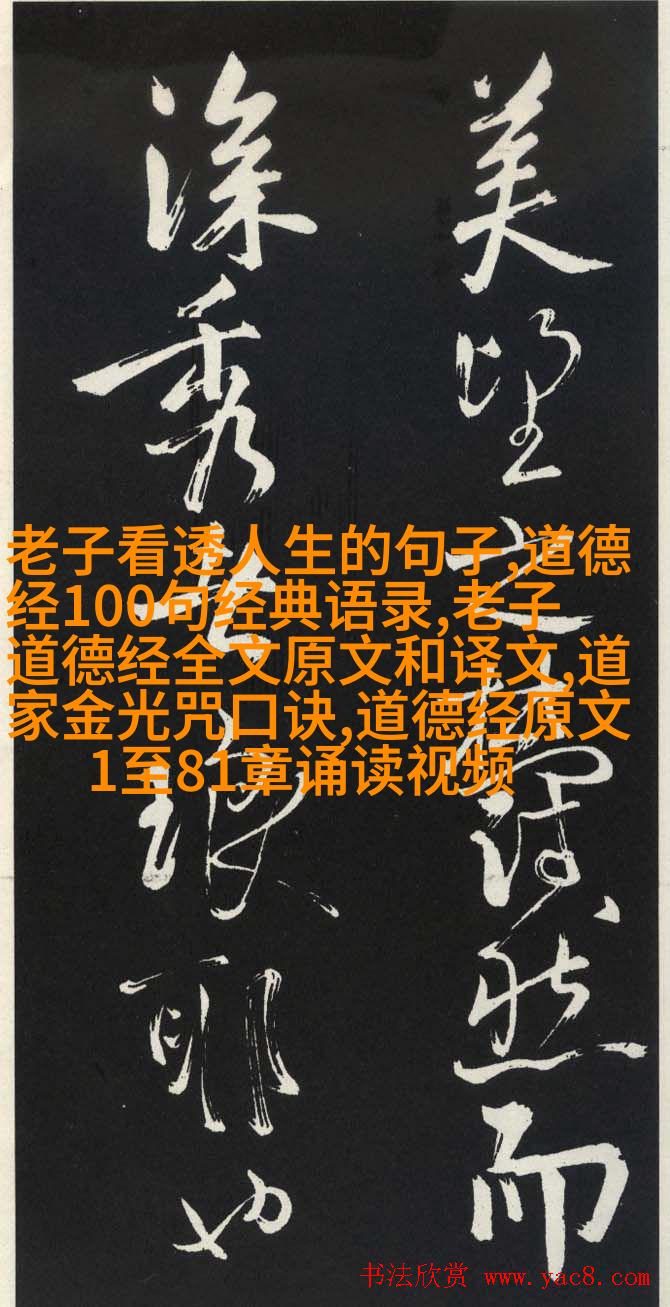 美望之蔚然而
深秀者琅耶也
老子看透人生的句子,道德
经100句经典语录,老子
道德经全文原文和译文,道
家金光咒口诀,道德经原文
1至81章诵读视频
书法欣赏 www.yac8.com